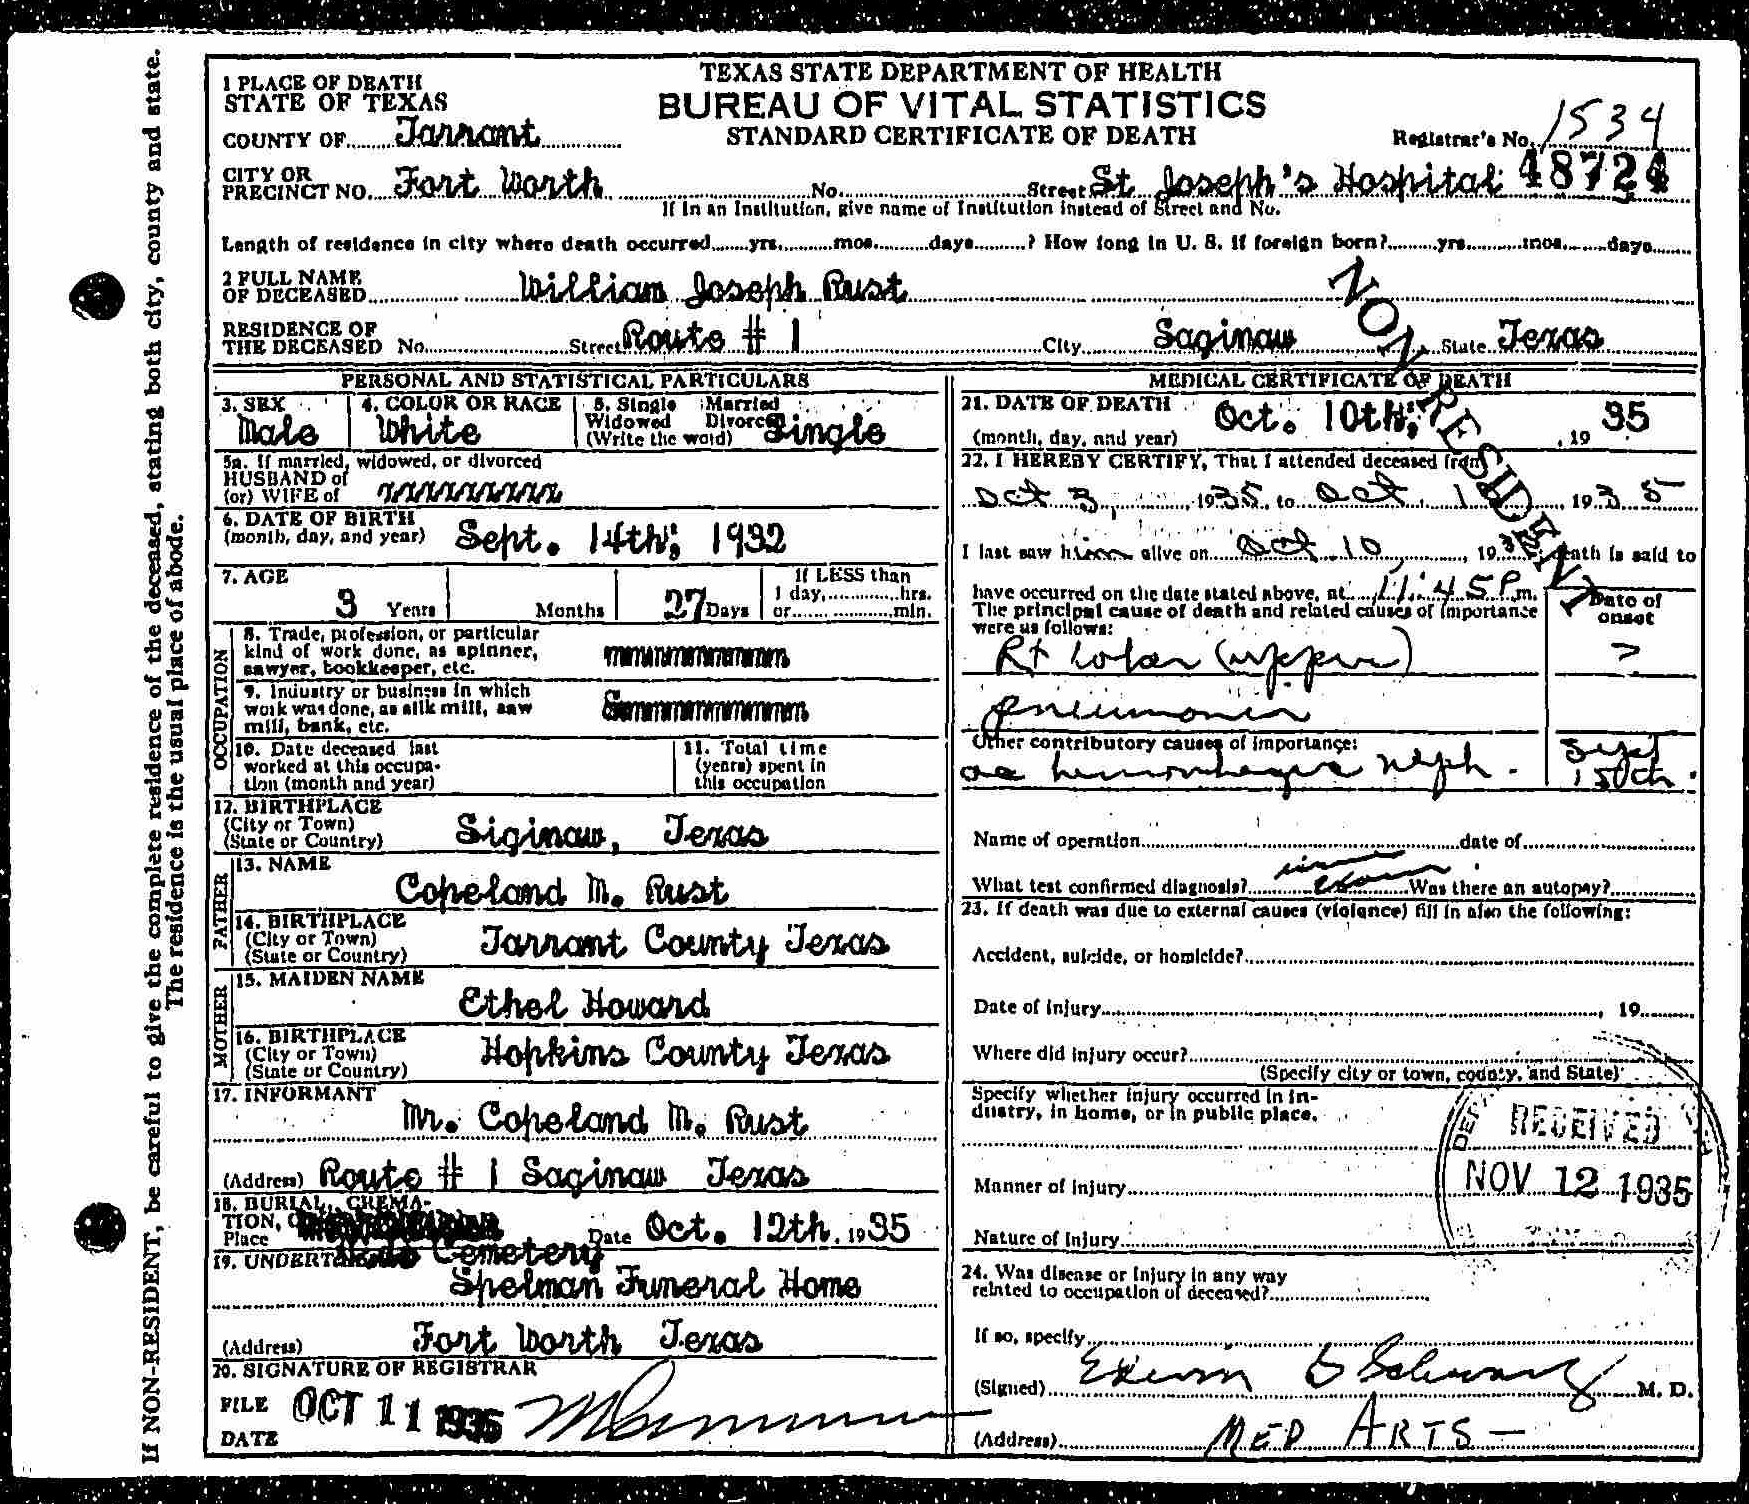 TEXAS STATE DEPARTMENT OF HEALTH
BUREAU OF VITAL STATISTICS
STANDARD CERTIFICATE OF DEATH
1 PLACE OF DEATH
STATE OF TEXAS
COUNTY OF Tarrant
Registrar's No. 1534
CITY OR
PRECINCT NO. Fort Worth No. Street St Joseph's Hospital 48724
If in an Institution, give name of Institution instead of Street and No.
Length of residence in city where death occurred yrs. mos. days ? How long in U. S. if foreign born? yrs. mos. days
2 FULL NAME
OF DECEASED William Joseph Rust
RESIDENCE OF
THE DECEASED No. Street Route # 1 City Saginaw State Texas
NON RESIDENT
PERSONAL AND STATISTICAL PARTICULARS
3. SEX Male
4. COLOR OR RACE White
5. Single Married
Widowed Divorced
(Write the word) Single
5a. If married, widowed, or divorced
HUSBAND of
(or) WIFE of
6. DATE OF BIRTH
(month, day, and year) Sept. 14th; 1932
7. AGE
3 Years Months 27 Days
If LESS than
1 day, hrs.
or min.
OCCUPATION
8. Trade, profession, or particular
kind of work done, as spinner,
sawyer, bookkeeper, etc.
9. Industry or business in which
work was done, as silk mill, saw
mill, bank, etc.
10. Date deceased last
worked at this occupa-
tion (month and year)
11. Total time
(years) spent in
this occupation
12. BIRTHPLACE
(City or Town)
(State or Country) Siginaw, Texas
FATHER
13. NAME
Copeland M. Rust
14. BIRTHPLACE
(City or Town)
(State or Country) Tarrant County Texas
MOTHER
15. MAIDEN NAME
Ethel Howard
16. BIRTHPLACE
(City or Town)
(State or Country) Hopkins County Texas
17. INFORMANT
Mr. Copeland M. Rust
(Address) Route # 1 Saginaw Texas
18. BURIAL, CREMA-
TION,
Place Cemetery Date Oct. 12th, 1935
19. UNDERTAKER
Spelman Funeral Home
(Address) Fort Worth Texas
20. SIGNATURE OF REGISTRAR
FILE
DATE OCT 11 1935
MEDICAL CERTIFICATE OF DEATH
21. DATE OF DEATH
(month, day, and year) Oct. 10th; , 19 35
22. I HEREBY CERTIFY, That I attended deceased from
Oct 3, 1935, to Oct. 10, 1935
I last saw him alive on Oct 10, 1935, death is said to
have occurred on the date stated above, at 11:45 P.m.
The principal cause of death and related causes of importance
were as follows:
Date of
onset
Rt lobar (upper) ?
pneumonia
Other contributory causes of importance:
hemorrhagic neph.
Sept
15
Name of operation date of
What test confirmed diagnosis? exam Was there an autopsy?
23. If death was due to external causes (violence) fill in also the following:
Accident, suicide, or homicide?
Date of injury , 19
Where did injury occur?
(Specify city or town, county, and State)
Specify whether injury occurred in in-
dustry, in home, or in public place.
RECEIVED
NOV 12 1935
Manner of injury
Nature of injury
24. Was disease or injury in any way
related to occupation of deceased?
If so, specify
(Signed) Edwin G Schwarz M. D.
(Address) MED ARTS —
If NON-RESIDENT, be careful to give the complete residence of the deceased, stating both city, county and state.
The residence is the usual place of abode.